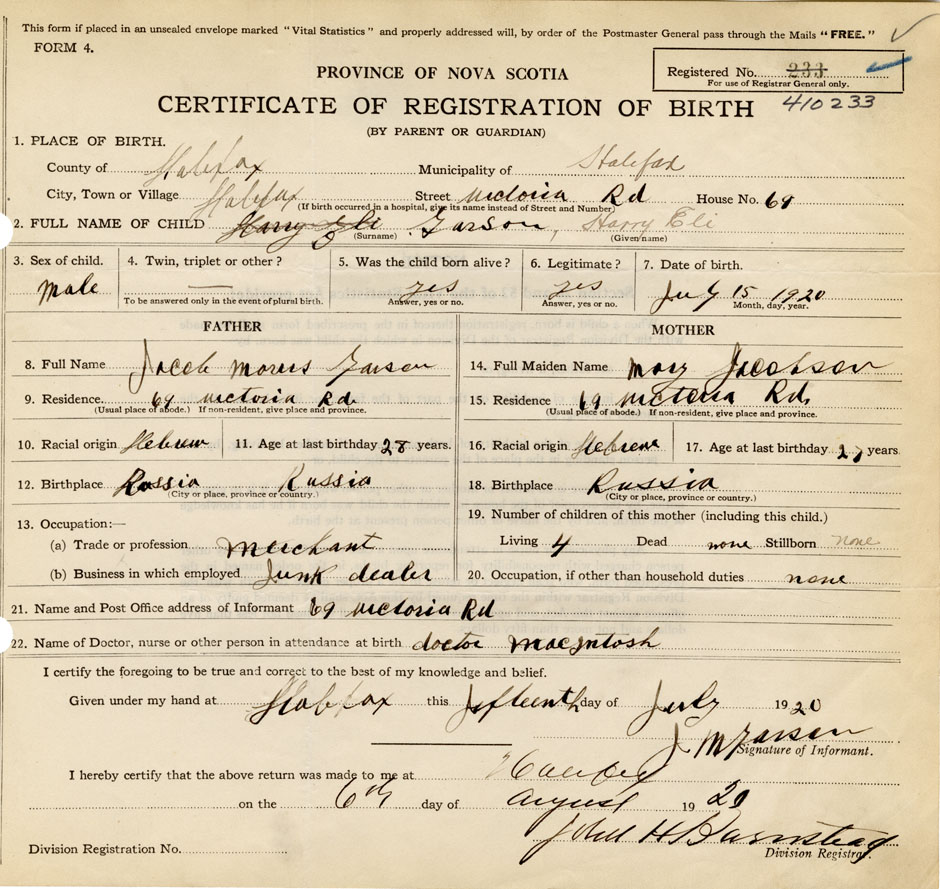 This form if placed in an unsealed envelope marked "Vital Statistics" and properly addressed will, by order of the Postmaster General pass through the Mails "FREE."
FORM 4.
Registered No. 233
For use of Registrar General only.
410233
PROVINCE OF NOVA SCOTIA
CERTIFICATE OF REGISTRATION OF BIRTH
(BY PARENT OR GUARDIAN)
1. PLACE OF BIRTH.
County of Halifax Municipality of Halifax
City, Town or Village Halifax Street Victoria Rd House No. 69
(If birth occurred in a hospital, give its name instead of Street and Number)
2. FULL NAME OF CHILD Harry Eli Garson, Harry Eli
(Surname) (Given name)
3. Sex of child. 4. Twin, triplet or other? 5. Was the child born alive? 6. Legitimate? 7. Date of birth.
Male — yes yes July 15 1920
To be answered only in the event of plural birth. Answer, yes or no. Answer, yes or no. Month, day, year.
FATHER MOTHER
8. Full Name Jacob Morris Garson 14. Full Maiden Name Mary Jacobson
9. Residence. 69 Victoria Rd. 15. Residence 69 Victoria Rd.
(Usual place of abode.) If non-resident, give place and province. (Usual place of abode.) If non-resident, give place and province.
10. Racial origin Hebrew 11. Age at last birthday 28 years. 16. Racial origin Hebrew 17. Age at last birthday years
12. Birthplace Russia Russia 18. Birthplace Russia
(City or place, province or country.) (City or place, province or country.)
13. Occupation:— 19. Number of children of this mother (including this child.)
(a) Trade or profession merchant Living 4 Dead none Stillborn none
(b) Business in which employed Junk dealer 20. Occupation, if other than household duties none
21. Name and Post Office address of Informant 69 Victoria Rd
22. Name of Doctor, nurse or other person in attendance at birth doctor MacIntosh
I certify the foregoing to be true and correct to the best of my knowledge and belief.
Given under my hand at Halifax this fifteenth day of July 1920
J M Garson
Signature of Informant.
I hereby certify that the above return was made to me at Halifax
on the 6th day of August 1920
John H Barnstead
Division Registrar.
Division Registration No.